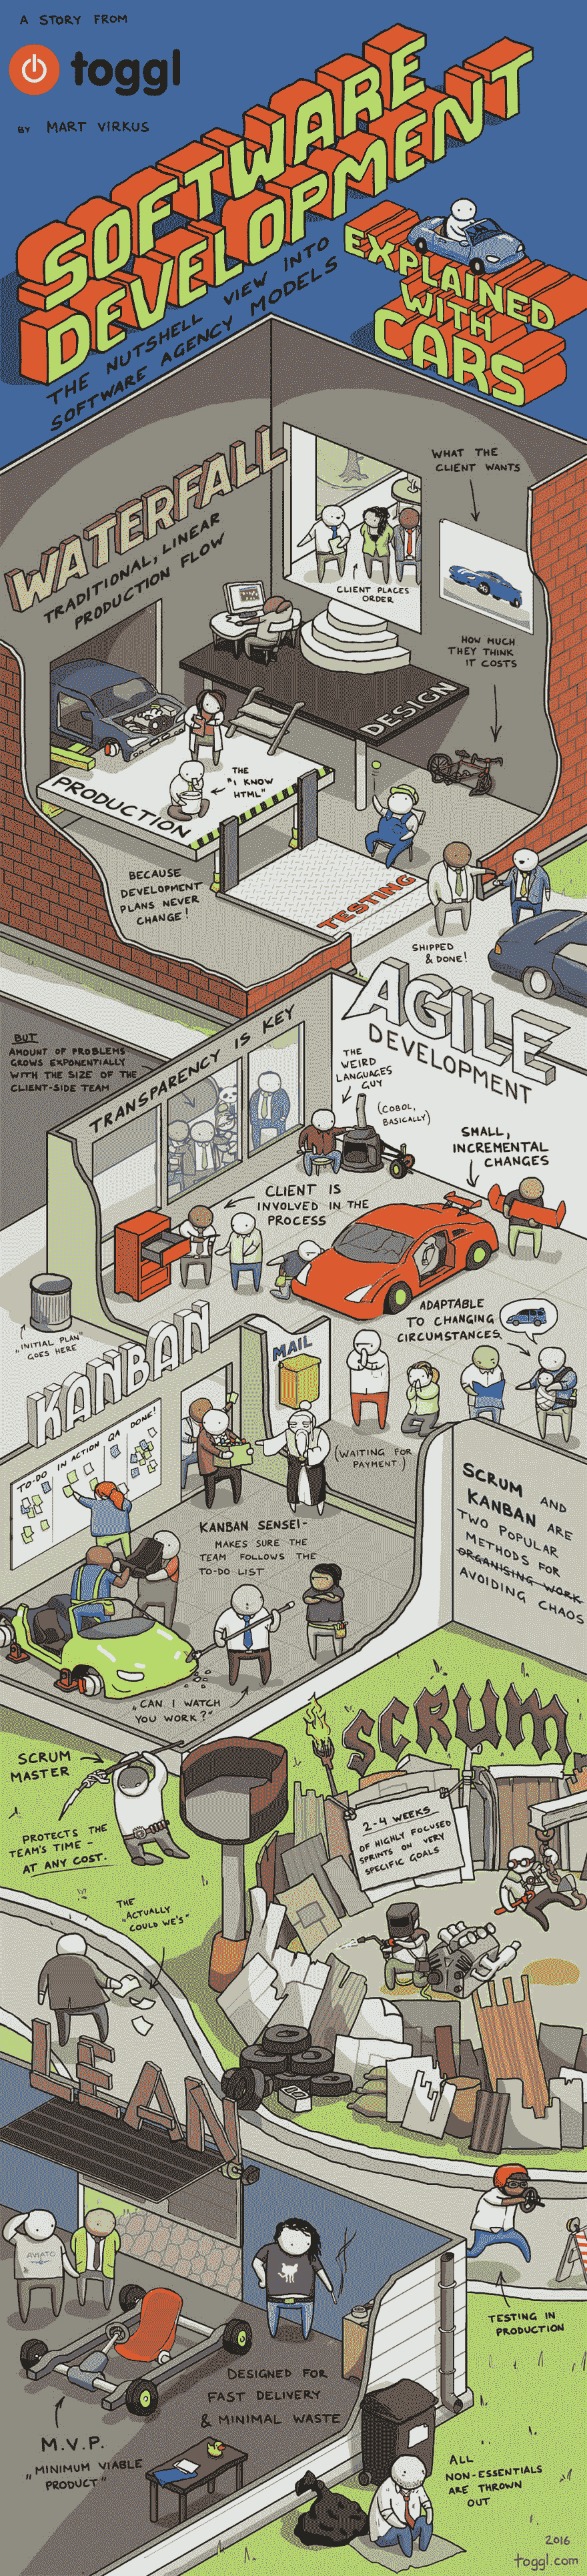 A STORY FROM
toggl
BY MART VIRKUS
SOFTWARE
DEVELOPMENT
EXPLAINED
WITH
CARS
THE NUTSHELL VIEW INTO
SOFTWARE AGENCY MODELS
WATERFALL
TRADITIONAL, LINEAR
PRODUCTION FLOW
WHAT THE
CLIENT WANTS
CLIENT PLACES
ORDER
HOW MUCH
THEY THINK
IT COSTS
DESIGN
THE
"I KNOW
HTML"
PRODUCTION
BECAUSE
DEVELOPMENT
PLANS NEVER
CHANGE!
TESTING
SHIPPED
& DONE!
AGILE
DEVELOPMENT
BUT
AMOUNT OF PROBLEMS
GROWS EXPONENTIALLY
WITH THE SIZE OF THE
CLIENT-SIDE TEAM
TRANSPARENCY IS KEY
THE
WEIRD
LANGUAGES
GUY
(COBOL,
BASICALLY)
SMALL,
INCREMENTAL
CHANGES
CLIENT IS
INVOLVED IN THE
PROCESS
"INITIAL PLAN"
GOES HERE
ADAPTABLE
TO CHANGING
CIRCUMSTANCES
KANBAN
MAIL
TO-DO IN ACTION QA DONE!
(WAITING FOR
PAYMENT)
KANBAN SENSEI-
MAKES SURE THE
TEAM FOLLOWS THE
TO-DO LIST
SCRUM AND
KANBAN ARE
TWO POPULAR
METHODS FOR
ORGANISING WORK
AVOIDING CHAOS
"CAN I WATCH
YOU WORK?"
SCRUM
SCRUM
MASTER
PROTECTS THE
TEAM'S TIME -
AT ANY COST.
2-4 WEEKS
OF HIGHLY FOCUSED
SPRINTS ON VERY
SPECIFIC GOALS
THE
"ACTUALLY
COULD WE'S"
LEAN
AVIATO
TESTING IN
PRODUCTION
DESIGNED FOR
FAST DELIVERY
& MINIMAL WASTE
M.V.P.
"MINIMUM VIABLE
PRODUCT"
ALL
NON-ESSENTIALS
ARE THROWN
OUT
2016
toggl.com